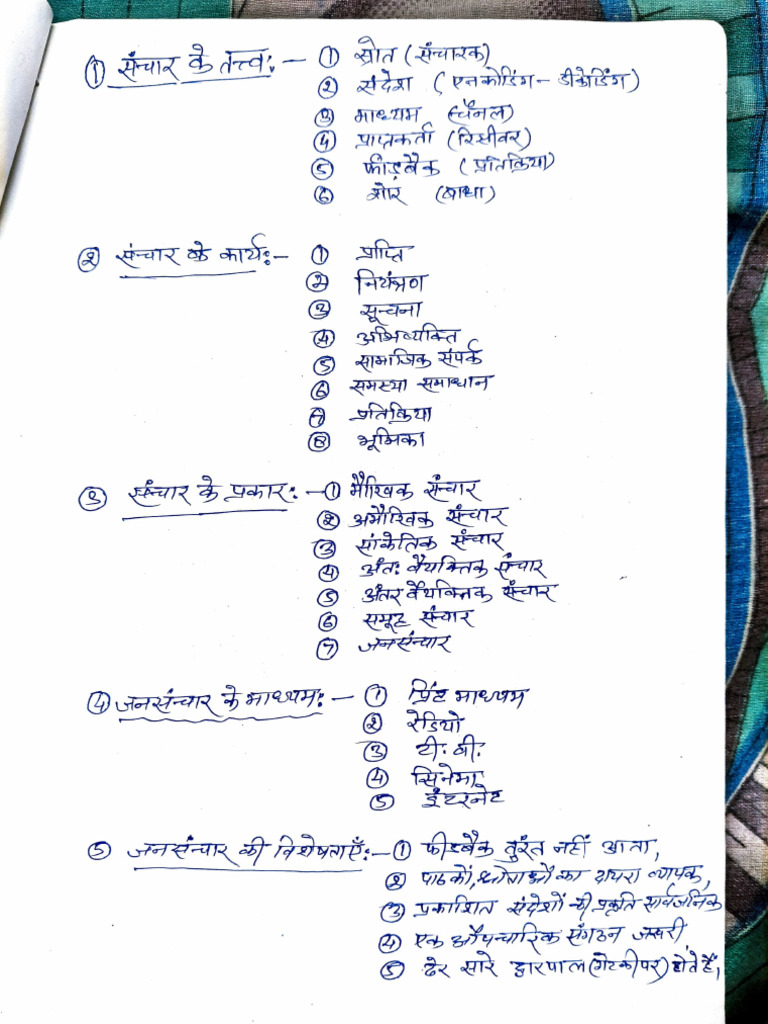 ① संचार के तत्त्व:— ① स्रोत (संचारक)
② संदेश (एनकोडिंग - डीकोडिंग)
③ माध्यम (चैनल)
④ प्राप्तकर्ता (रिसीवर)
⑤ फीडबैक (प्रतिक्रिया)
⑥ शोर (बाधा)
② संचार के कार्य:— ① प्राप्ति
② नियंत्रण
③ सूचना
④ अभिव्यक्ति
⑤ सामाजिक संपर्क
⑥ समस्या समाधान
⑦ प्रतिक्रिया
⑧ भूमिका
③ संचार के प्रकार:— ① मौखिक संचार
② अमौखिक संचार
③ सांकेतिक संचार
④ अंतः वैयक्तिक संचार
⑤ अंतर वैयक्तिक संचार
⑥ समूह संचार
⑦ जनसंचार
④ जनसंचार के माध्यम:— ① प्रिंट माध्यम
② रेडियो
③ टी. वी.
④ सिनेमा
⑤ इंटरनेट
⑤ जनसंचार की विशेषताएँ:— ① फीडबैक तुरंत नहीं आता,
② पाठकों, श्रोताओं का दायरा व्यापक,
③ प्रकाशित संदेशों की प्रकृति सार्वजनिक
④ एक औपचारिक संगठन जरूरी,
⑤ ढेर सारे द्वारपाल (गेटकीपर) होते हैं,